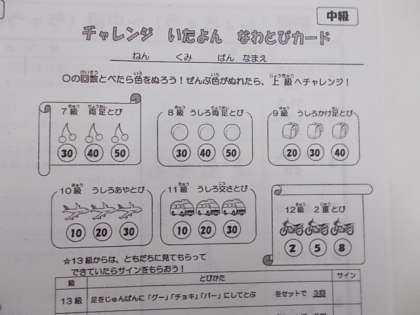 中級
チャレンジ いたよん なわとびカード
ねん くみ ばん なまえ
○の回数とべたら色をぬろう!ぜんぶ色がぬれたら、上級へチャレンジ!
7級 両足とび
30 40 50
8級 うしろ両足とび
30 40 50
9級 うしろかけ足とび
20 30 40
10級 うしろあやとび
10 20 30
11級 うしろ交さとび
10 20 30
12級 2重とび
2 5 8
☆13級からは、ともだちに見てもらって
できていたらサインをもらおう!
級 とびかた サイン
13級 足をじゅんばんに「グー」「チョキ」「パー」にしてとぶ をセットで 3回